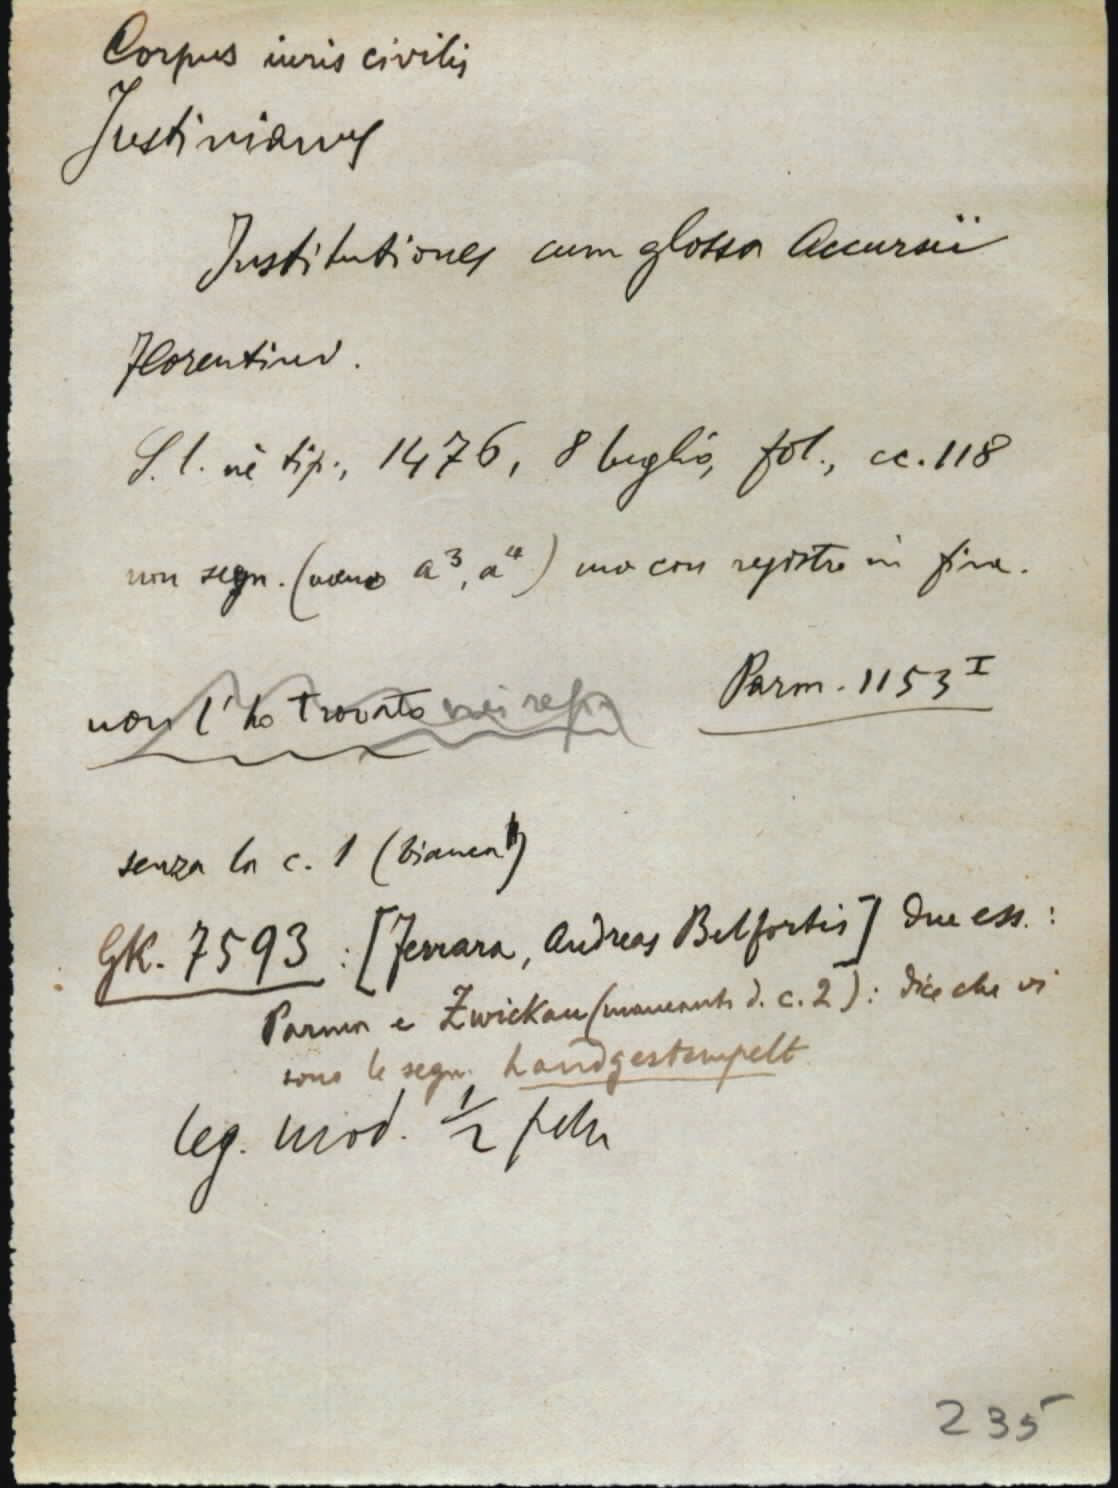 Corpus iuris civilis
Justinianus
Institutiones cum glossa Accursii
Florentini.
S. l. nè tip., 1476, 8 luglio, fol., cc. 118
non segn. (meno a³, a⁴) ma con registro in fine.
non l'ho trovato nei rep.
Parm. 1153 I
senza la c. 1 (bianca)
GK. 7593 : [Ferrara, Andreas Belfortis] due ess. :
Parma e Zwickau (mancante d. c. 2) : dice che vi
sono le segn. handgestempelt
leg. mod. 1/2 pelle
235